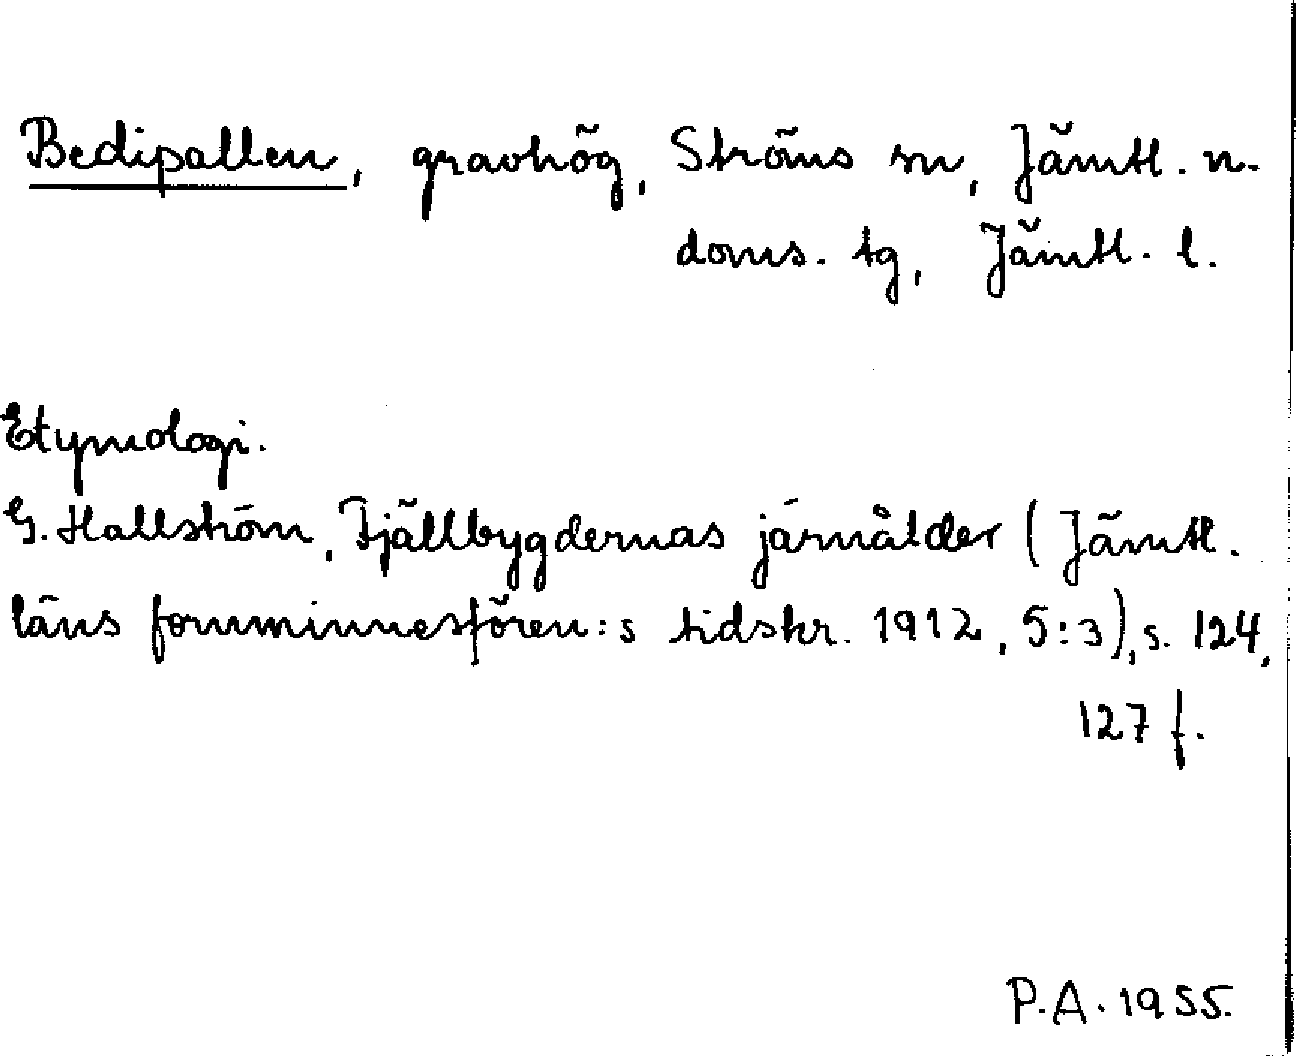 Bedipallen, gravhög, Ströms sn, Jämtl. n.
doms. tg, Jämtl. l.
Etymologi.
G. Hallström, Fjällbygdernas järnålder (Jämtl.
läns fornminnesfören:s tidskr. 1912, 5:3), s. 124,
127 f.
P.A. 1955.